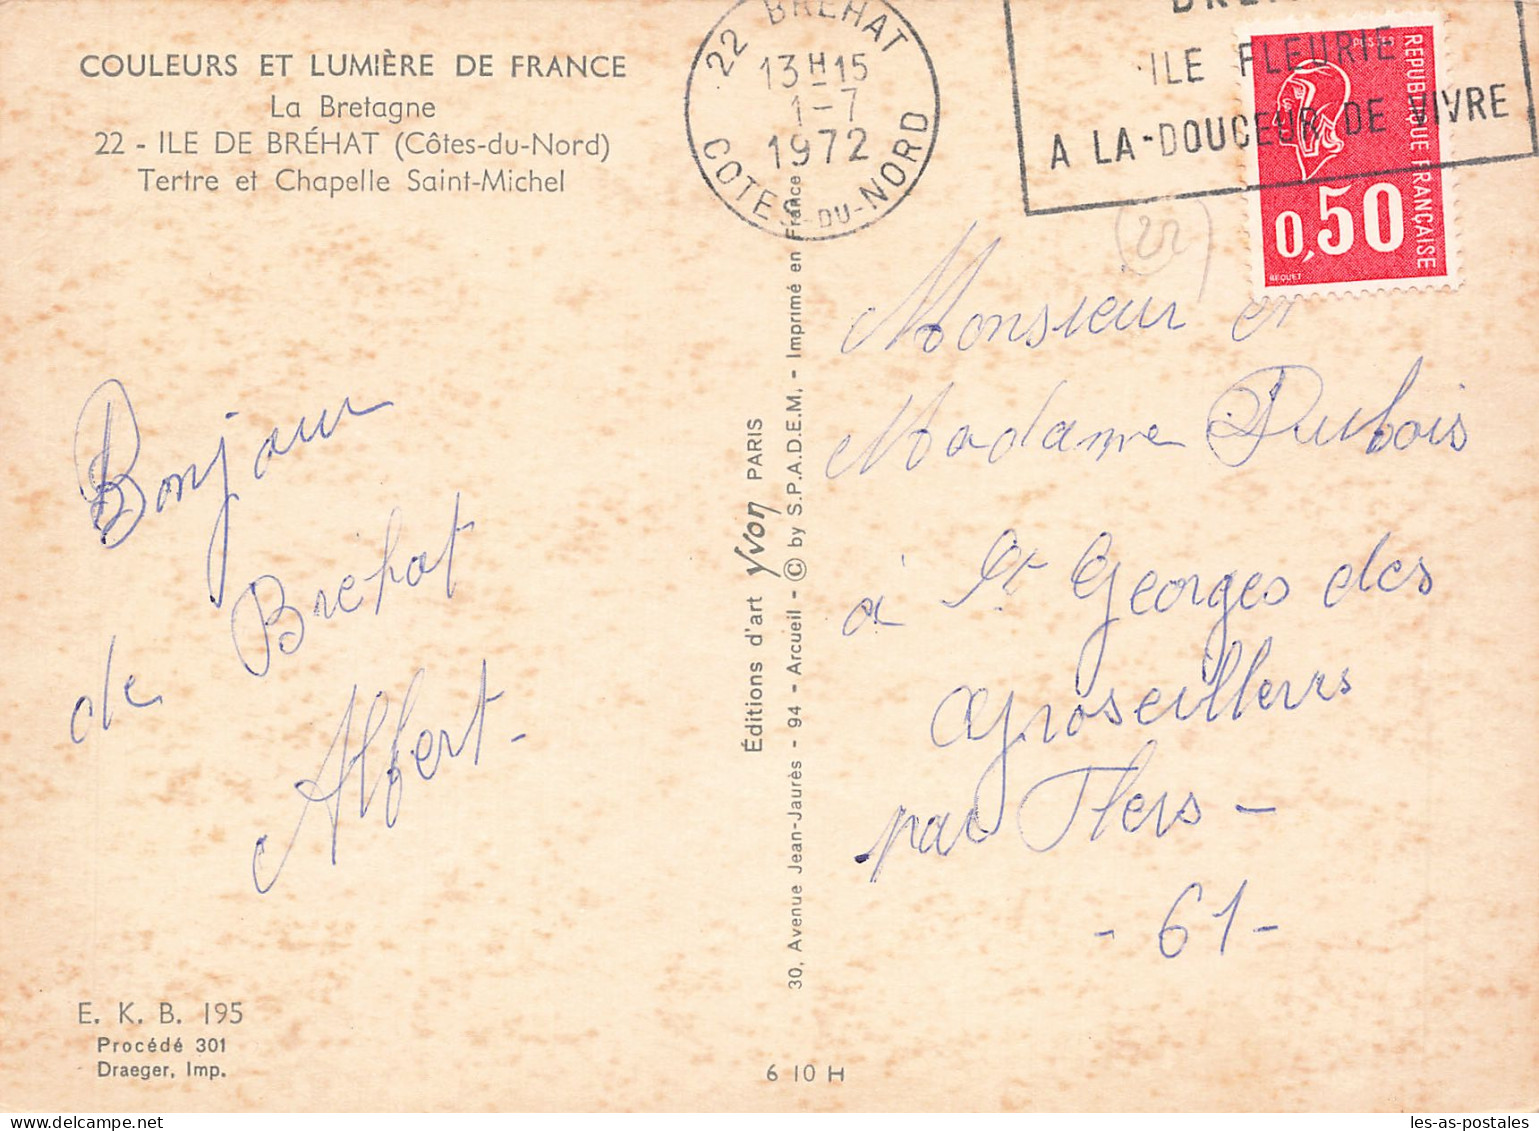 COULEURS ET LUMIÈRE DE FRANCE
La Bretagne
22 - ILE DE BRÉHAT (Côtes-du-Nord)
Tertre et Chapelle Saint-Michel
22 BREHAT
13H15
1-7
1972
COTES-DU-NORD
ILE FLEURIE
A LA-DOUCEUR DE VIVRE
POSTES
REPUBLIQUE FRANÇAISE
0,50
BEQUET
22
Bonjour
de Brehat
Albert -
Éditions d'art yvon PARIS
30, Avenue Jean-Jaurès - 94 - Arcueil - © by S.P.A.D.E.M. - Imprimé en France
Monsieur et
Madame Dubois
à St Georges des
Groseillers
par Flers -
- 61 -
E. K. B. 195
Procédé 301
Draeger, Imp.
6 10 H
les-as-postales